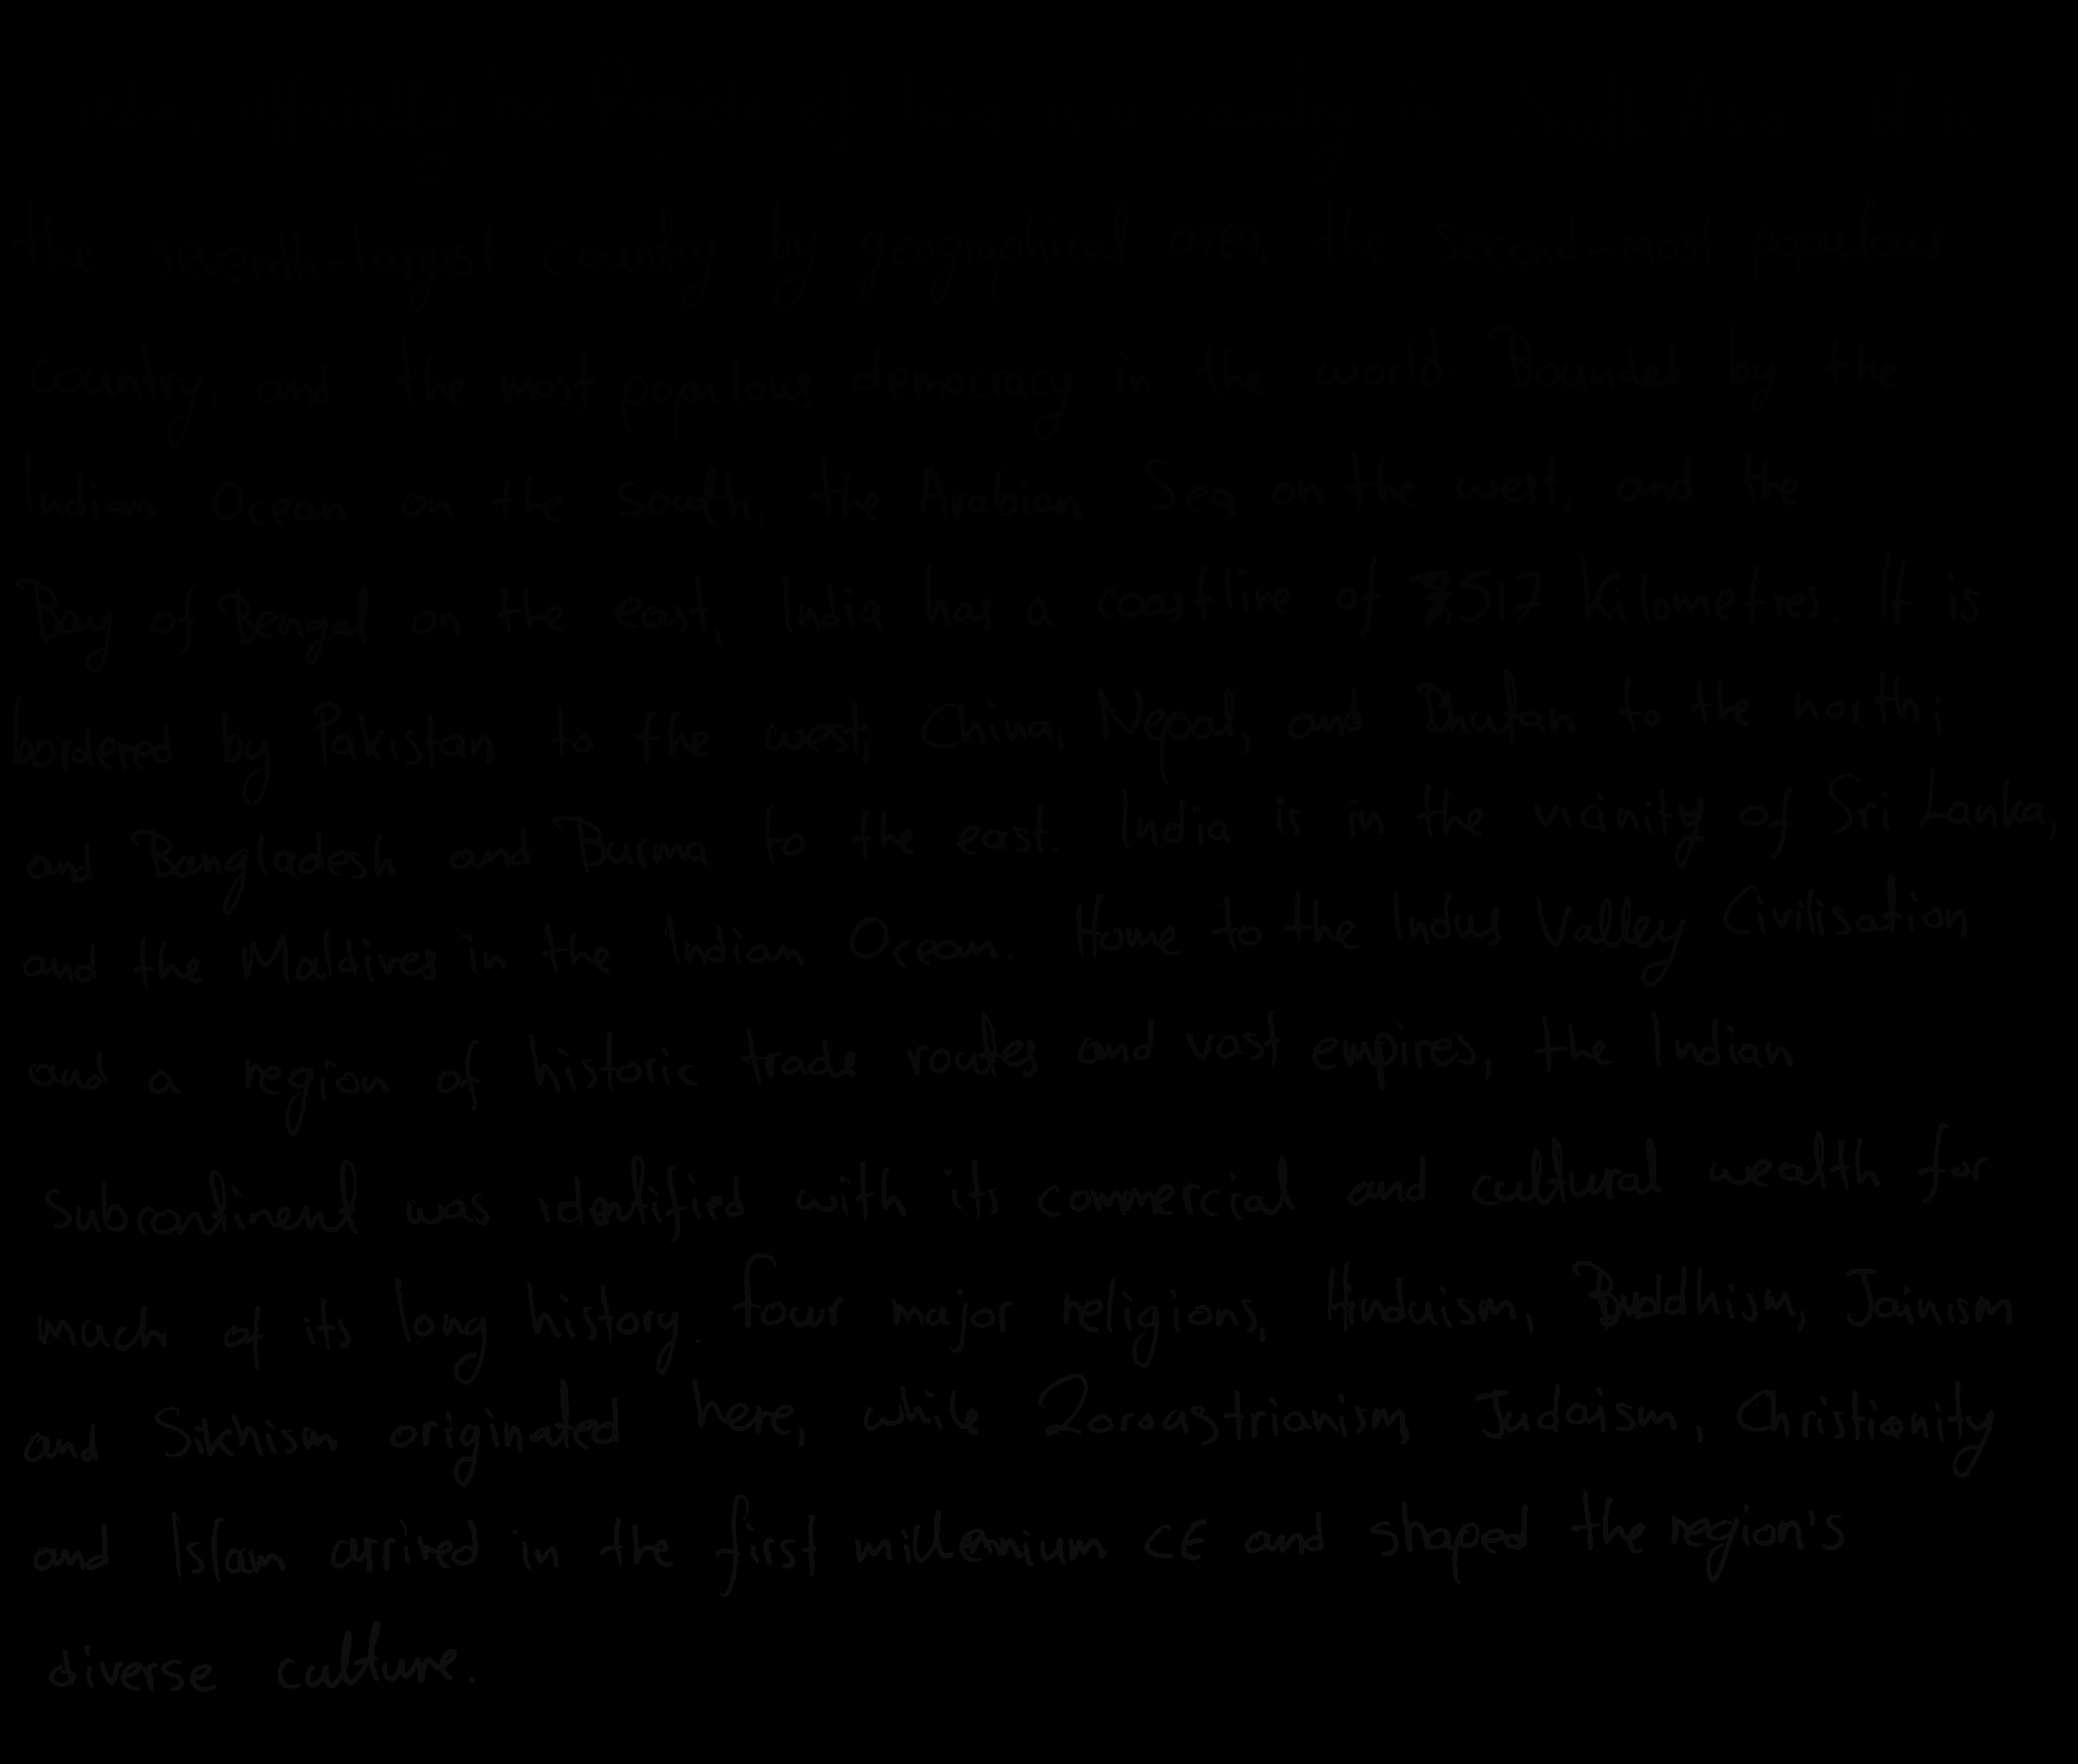 India, officially the Republic of India, is a country in South Asia. It is
the seventh-largest country by geographical area, the second-most populous
country, and the most populous democracy in the world. Bounded by the
Indian Ocean on the south, the Arabian Sea on the west, and the
Bay of Bengal on the east, India has a coastline of 7,517 kilometres. It is
bordered by Pakistan to the west; China, Nepal, and Bhutan to the north;
and Bangladesh and Burma to the east. India is in the vicinity of Sri Lanka,
and the Maldives in the Indian Ocean. Home to the Indus Valley Civilisation
and a region of historic trade routes and vast empires, the Indian
subcontinent was identified with its commercial and cultural wealth for
much of its long history. Four major religions, Hinduism, Buddhism, Jainism
and Sikhism originated here, while Zoroastrianism, Judaism, Christianity
and Islam arrived in the first millennium CE and shaped the region's
diverse culture.